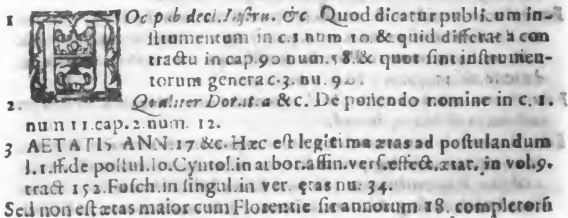 1 HOc pub deci. Instru. &c. Quod dicatur publicum in-
strumentum in c.1 num 10. & quid differat a con
tractu in cap.90 num.58.& quot sint instrumen-
torum genera c.3. nu. 90.
2. Qualiter Donat.a &c. De ponendo nomine in c. 1.
num 11.cap.2.num. 12.
3 AETATIS ANN. 17 &c. Hæc est legitima ætas ad postulandum
l.1.ff.de postul.Io.Cynol.in arbor.affin.vers.effect.ætat. in vol.9.
tract 152.Fusch.in singul.in ver. ętas nu. 34.
Sed non est ætas maior cum Florentie sit annorum 18. completorū